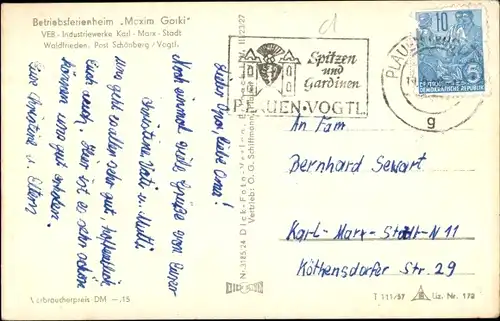 Betriebsferienheim „Maxim Gorki"
VEB - Industriewerke Karl - Marx - Stadt
Waldfrieden, Post Schönberg / Vogtl.
Lieber Opa, liebe Oma!
Noch einmal viele Grüße von Eurer
Christine, Vati u. Mutti
uns geht es allen sehr gut, hoffentlich
Euch auch. Hier ist es sehr schön
können uns gut erholen.
Eure Christine u. Eltern
Verbraucherpreis DM —,15
Nr. 3185/24 Dick-Foto-Verlag
Vertrieb: O. G. Schiffmann
II/23/27
Spitzen
und
Gardinen
PLAUEN · VOGTL
PLAUEN
g
10
DEUTSCHE
DEMOKRATISCHE REPUBLIK
5
An Fam
Bernhard Sewart
Karl-Marx-Stadt-N 11
Köthensdorfer Str. 29
T 111/57
Liz. Nr. 178